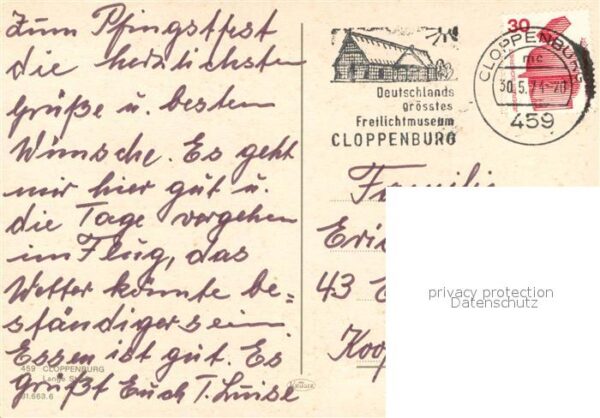 Zum Pfingstfest
die herzlichsten
Grüße u. besten
Wünsche. Es geht
mir hier gut u.
die Tage vergehen
im Flug, das
Wetter könnte be=
ständiger sein
Essen ist gut. Es
grüßt Euch T. Luise
459 CLOPPENBURG
Lange
Krüger
Deutschlands
grösstes
Freilichtmuseum
CLOPPENBURG
30
CLOPPENBURG
mc
30.5.
459
Familie
43
privacy protection
Datenschutz